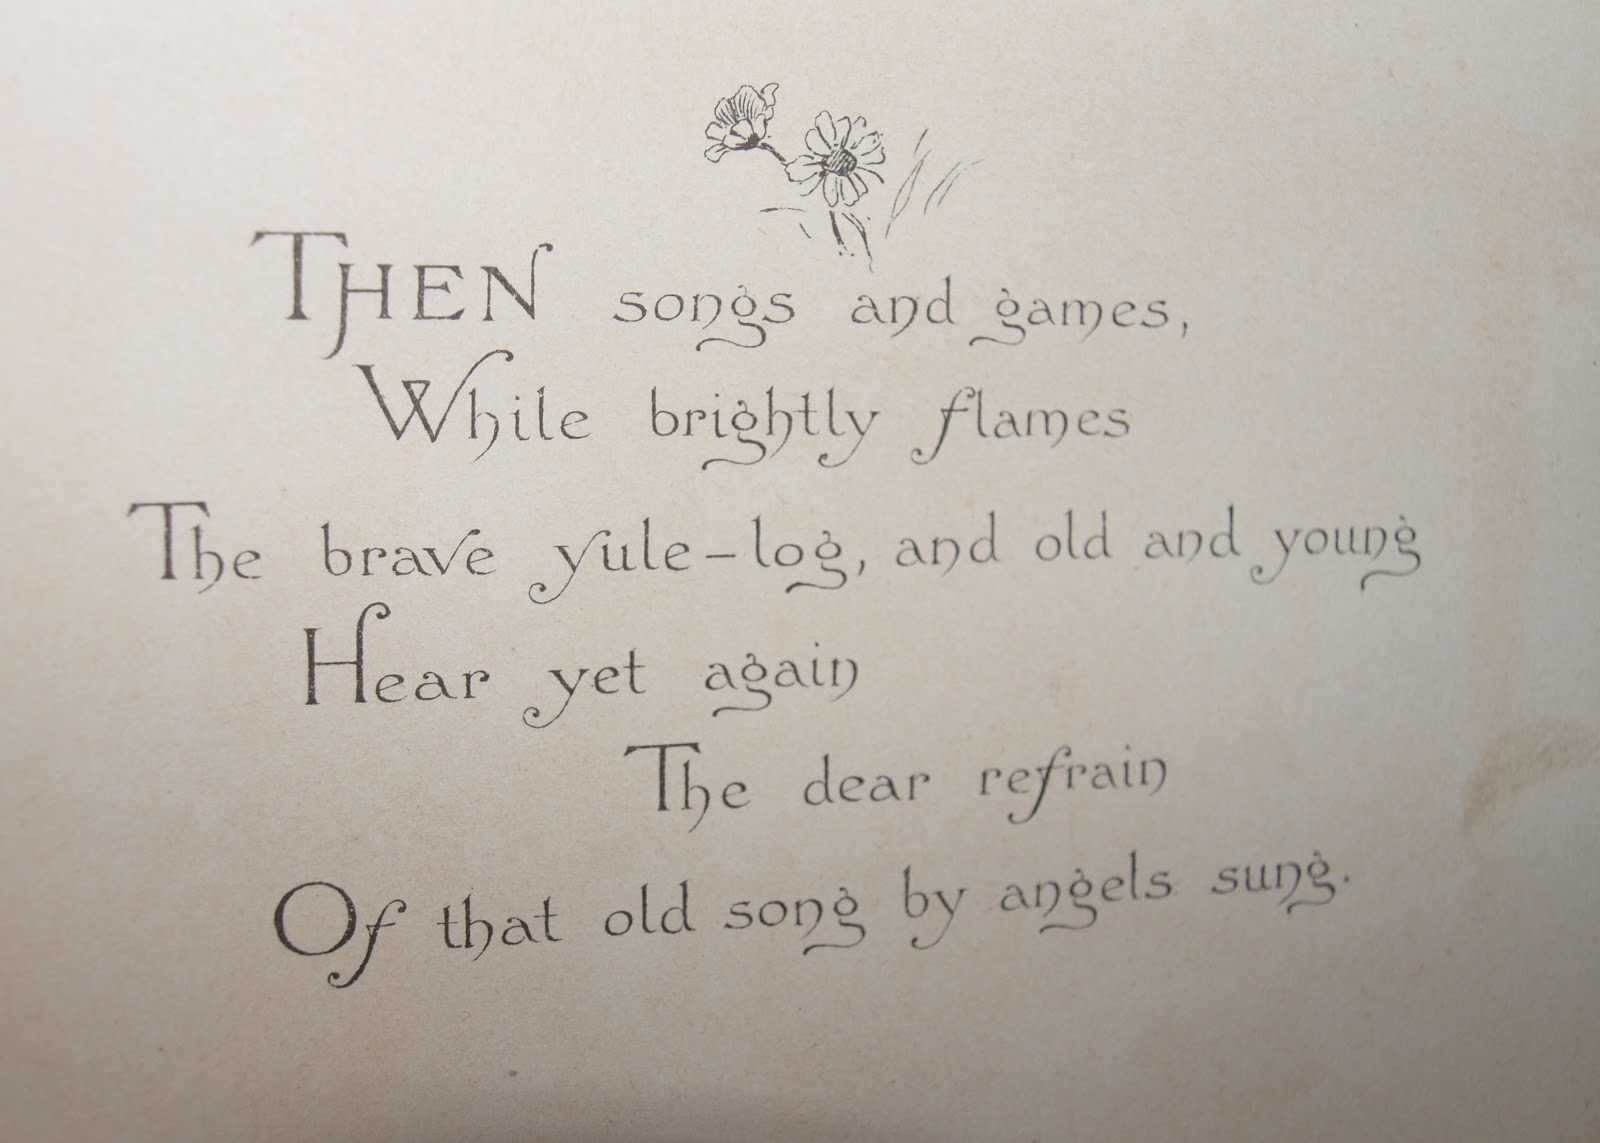 THEN songs and games,
While brightly flames
The brave yule-log, and old and young
Hear yet again
The dear refrain
Of that old song by angels sung.